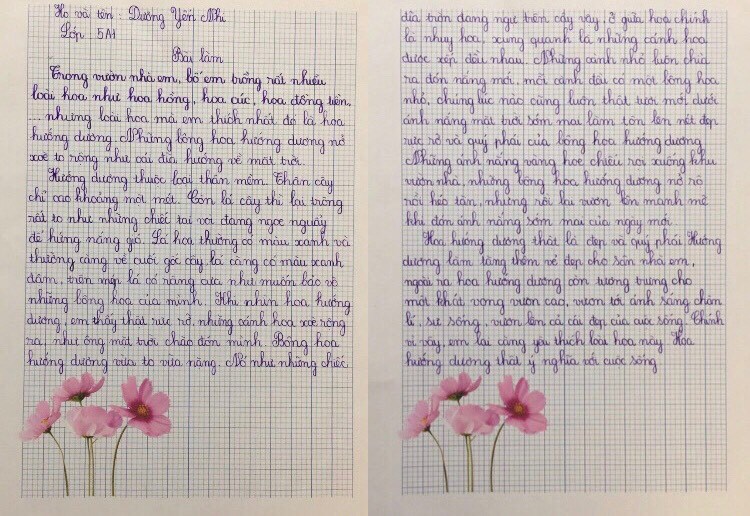 Họ và tên : Dương Yến Nhi
Lớp 5A1
Bài làm
Trong vườn nhà em, bố em trồng rất nhiều
loài hoa như hoa hồng, hoa cúc, hoa đồng tiền,
... nhưng loài hoa mà em thích nhất đó là hoa
hướng dương. Những bông hoa hướng dương nở
xoè to rộng như cái đĩa hướng về mặt trời.
Hướng dương thuộc loài thân mềm. Thân cây
chỉ cao khoảng một mét. Còn lá cây thì lại trông
rất to như những chiếc tai voi đang ngoe nguẩy
để hứng nắng gió. Lá hoa thường có màu xanh và
thường càng về cuối gốc cây lá càng có màu xanh
đậm, trên mép lá có răng cưa như muốn bảo vệ
những bông hoa của mình. Khi nhìn hoa hướng
dương, em thấy thật rực rỡ, những cánh hoa xoè rộng
ra, như ông mặt trời chào đón mình. Bông hoa
hướng dương vừa to vừa nặng. Nó như những chiếc
đĩa tròn đang ngự trên cây vậy, ở giữa hoa chính
là nhuỵ hoa, xung quanh là những cánh hoa
được xếp đều nhau. Những cánh nhỏ luôn chìa
ra đón nắng mới, mỗi cánh đều có một lông hoa
nhỏ, chúng lúc nào cũng luôn thật tươi mới, dưới
ánh nắng mặt trời sớm mai làm tôn lên nét đẹp
rực rỡ và quý phái của bông hoa hướng dương.
Những ánh nắng vàng hoe chiếu rọi xuống khu
vườn nhà, những bông hoa hướng dương nở rộ
rồi héo tàn, nhưng rồi lại vươn lên mạnh mẽ
khi đón ánh nắng sớm mai của ngày mới.
Hoa hướng dương thật là đẹp và quý phái. Hướng
dương làm tăng thêm vẻ đẹp cho sân nhà em,
ngoài ra hoa hướng dương còn tượng trưng cho
một khát vọng vươn cao, vươn tới ánh sáng chân
lí, sự sống, vươn lên cả cái đẹp của cuộc sống. Chính
vì vậy, em lại càng yêu thích loài hoa này. Hoa
hướng dương thật ý nghĩa với cuộc sống